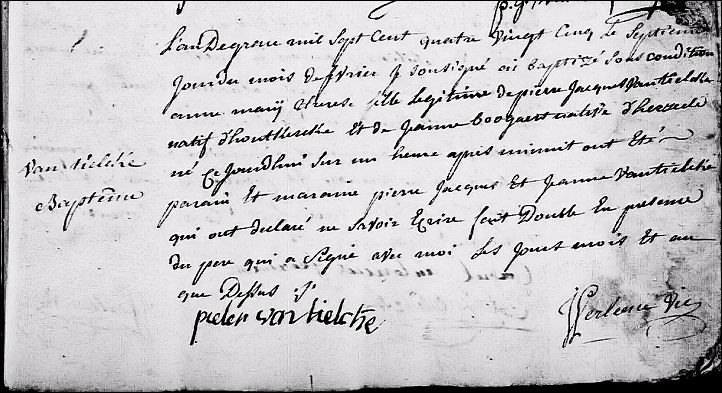 L'an De grace mil Sept Cent quatre vingt Cinq le Septieme
Jour du mois de fevrier Je soussigné ai baptizé sous condition
anne marij therese fille legitime de pierre Jacques Vantielcke
natif d'houtkercke et de Jeanne boogaert native d'herzeele
né Ce Jourdhui Sur un heure apres minuit ont Eté
Vantielcke
Baptême
parain Et maraine pierre Jacques Et Jeanne Vantielcke
qui ont declaré ne Savoir Ecrire fait Double En presence
du pere qui a Signé avec moi Les Jours mois Et an
que Dessus
pieter vantielcke